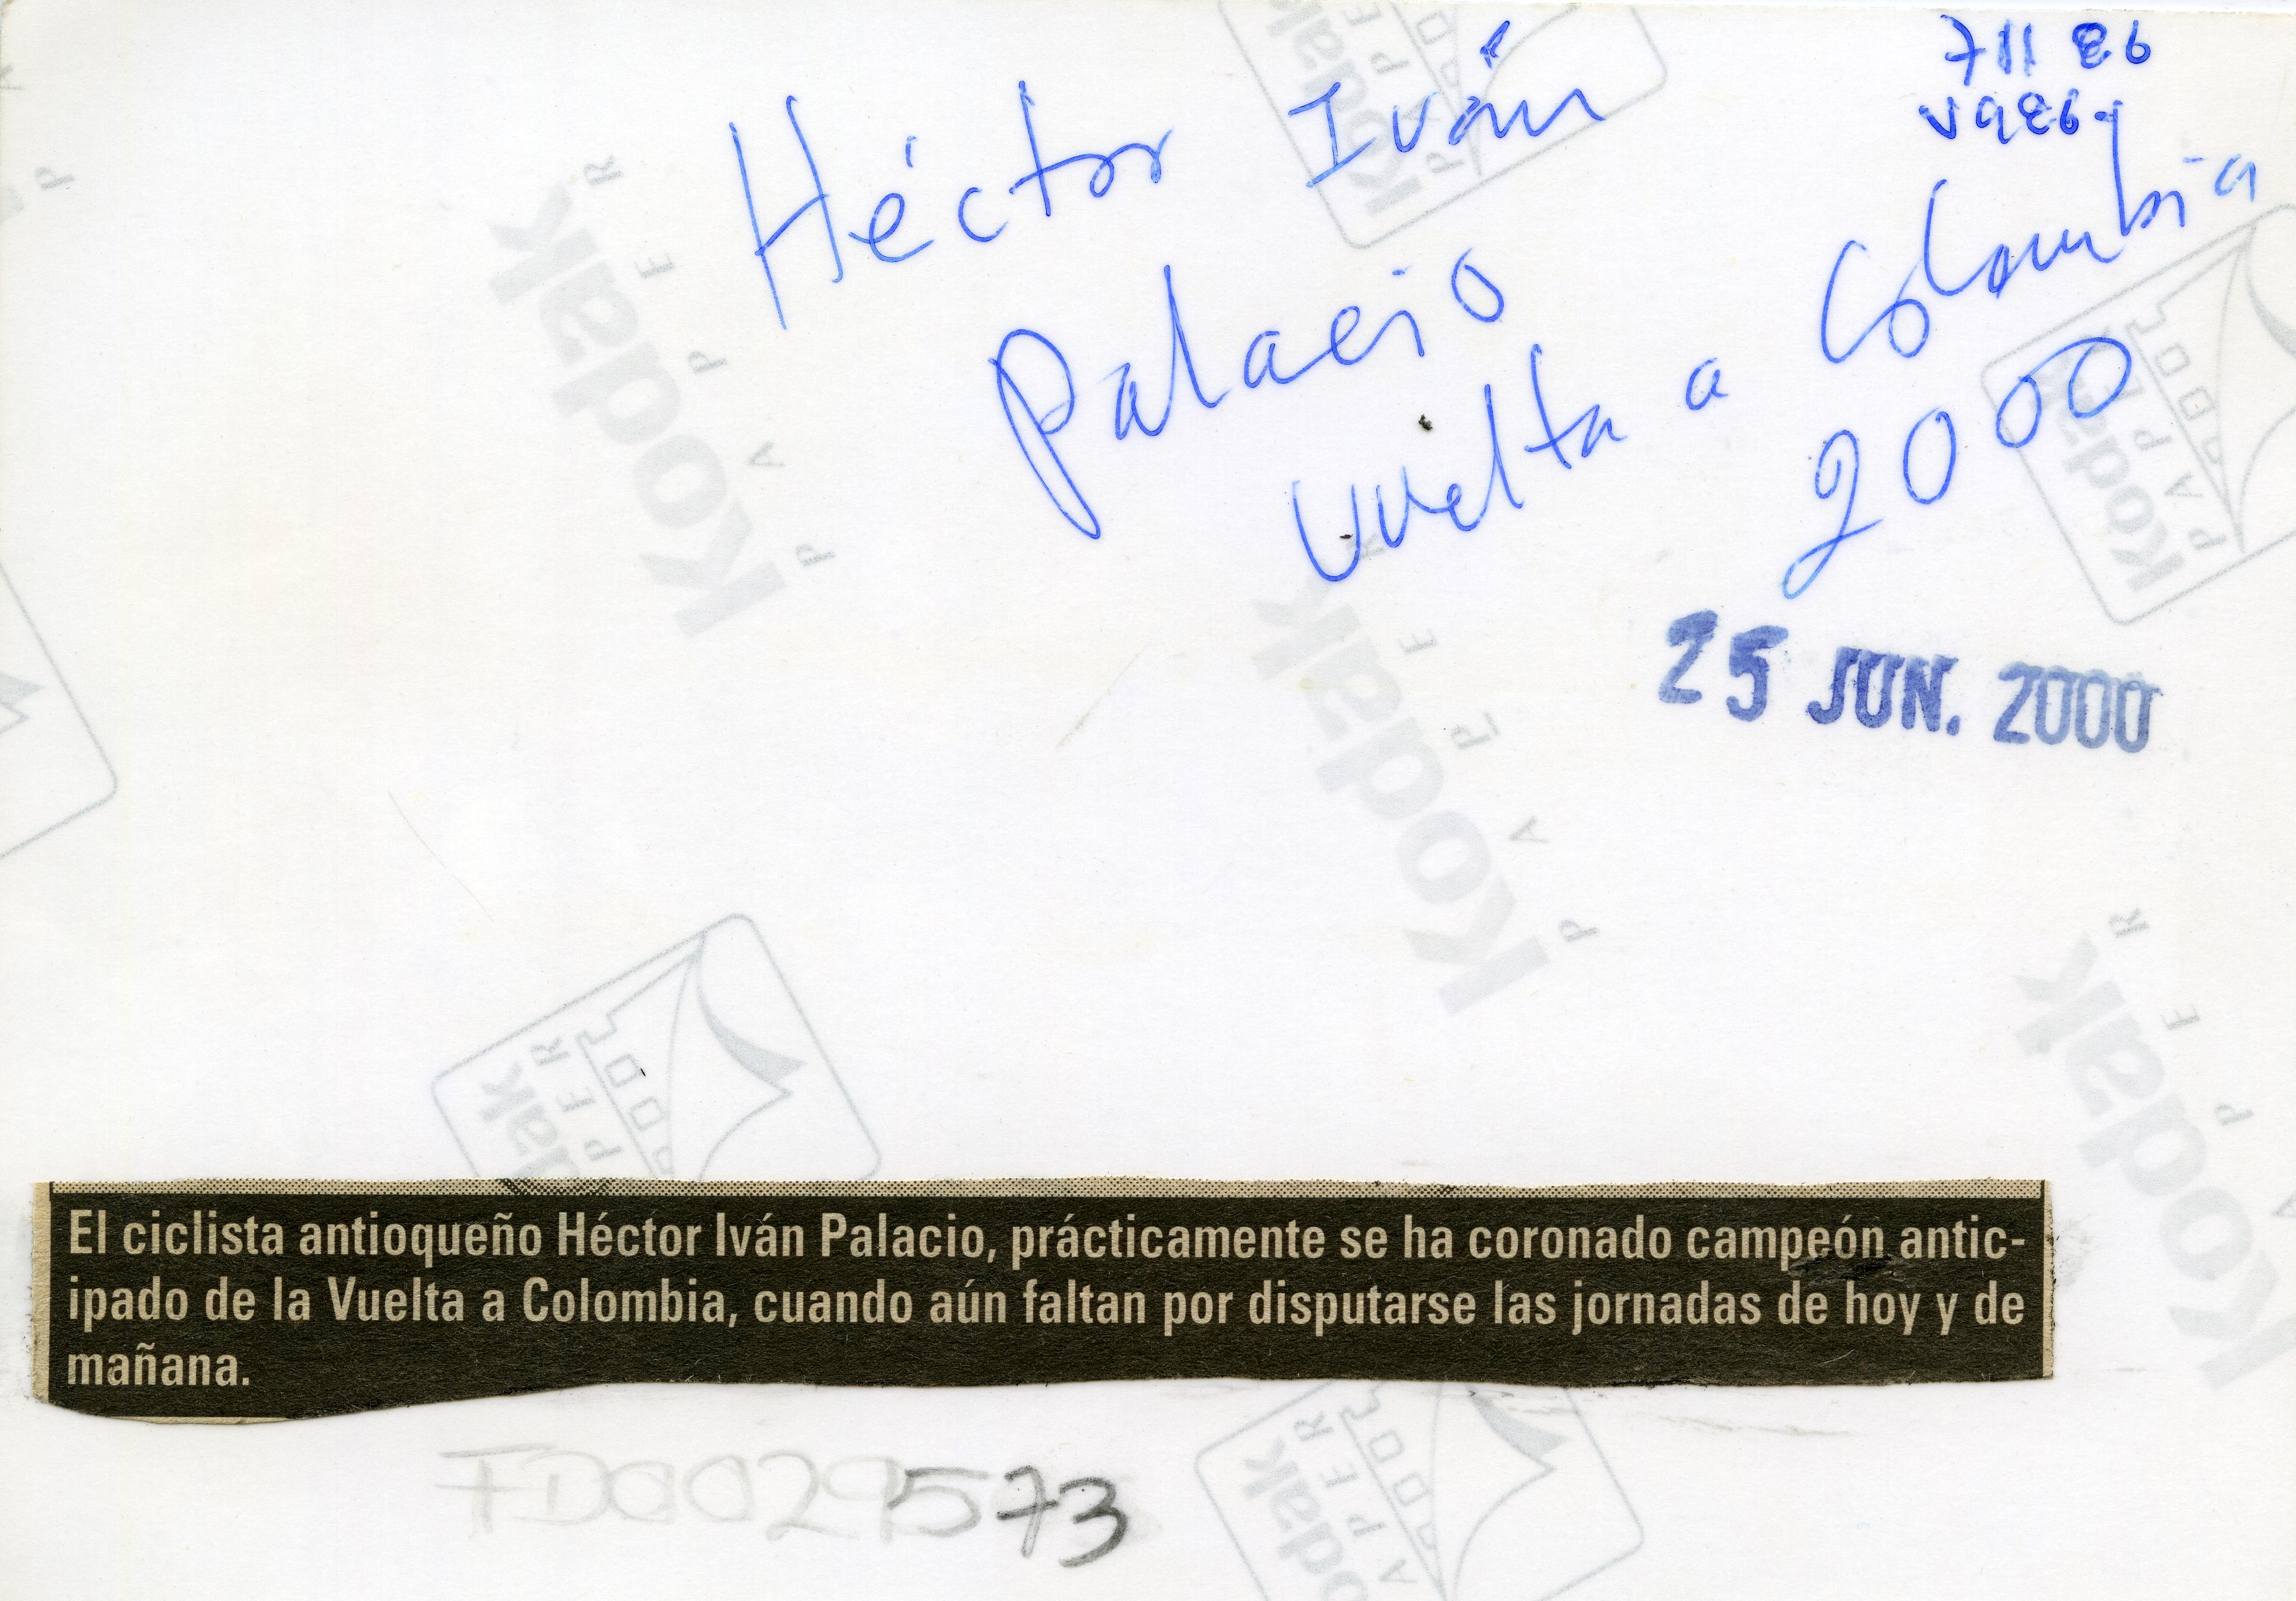 Héctor Iván
Palacio
Vuelta a Colombia
2000
25 JUN. 2000
El ciclista antioqueño Héctor Iván Palacio, prácticamente se ha coronado campeón antic-
ipado de la Vuelta a Colombia, cuando aún faltan por disputarse las jornadas de hoy y de
mañana.
FD0029573
Kodak
PAPER
Kodak
PAPER
Kodak
PAPER